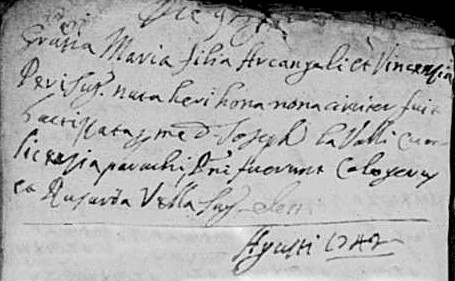 Die
Gratia Maria filia Arcangeli et Vincentia
Peri Jug. nata heri hora nona circiter fuit
baptizata p me D. Joseph La Valli cum
licentia parochi, Pni fuerunt Calogerus
et Rusaria Vella Jug.
Agusti 1747